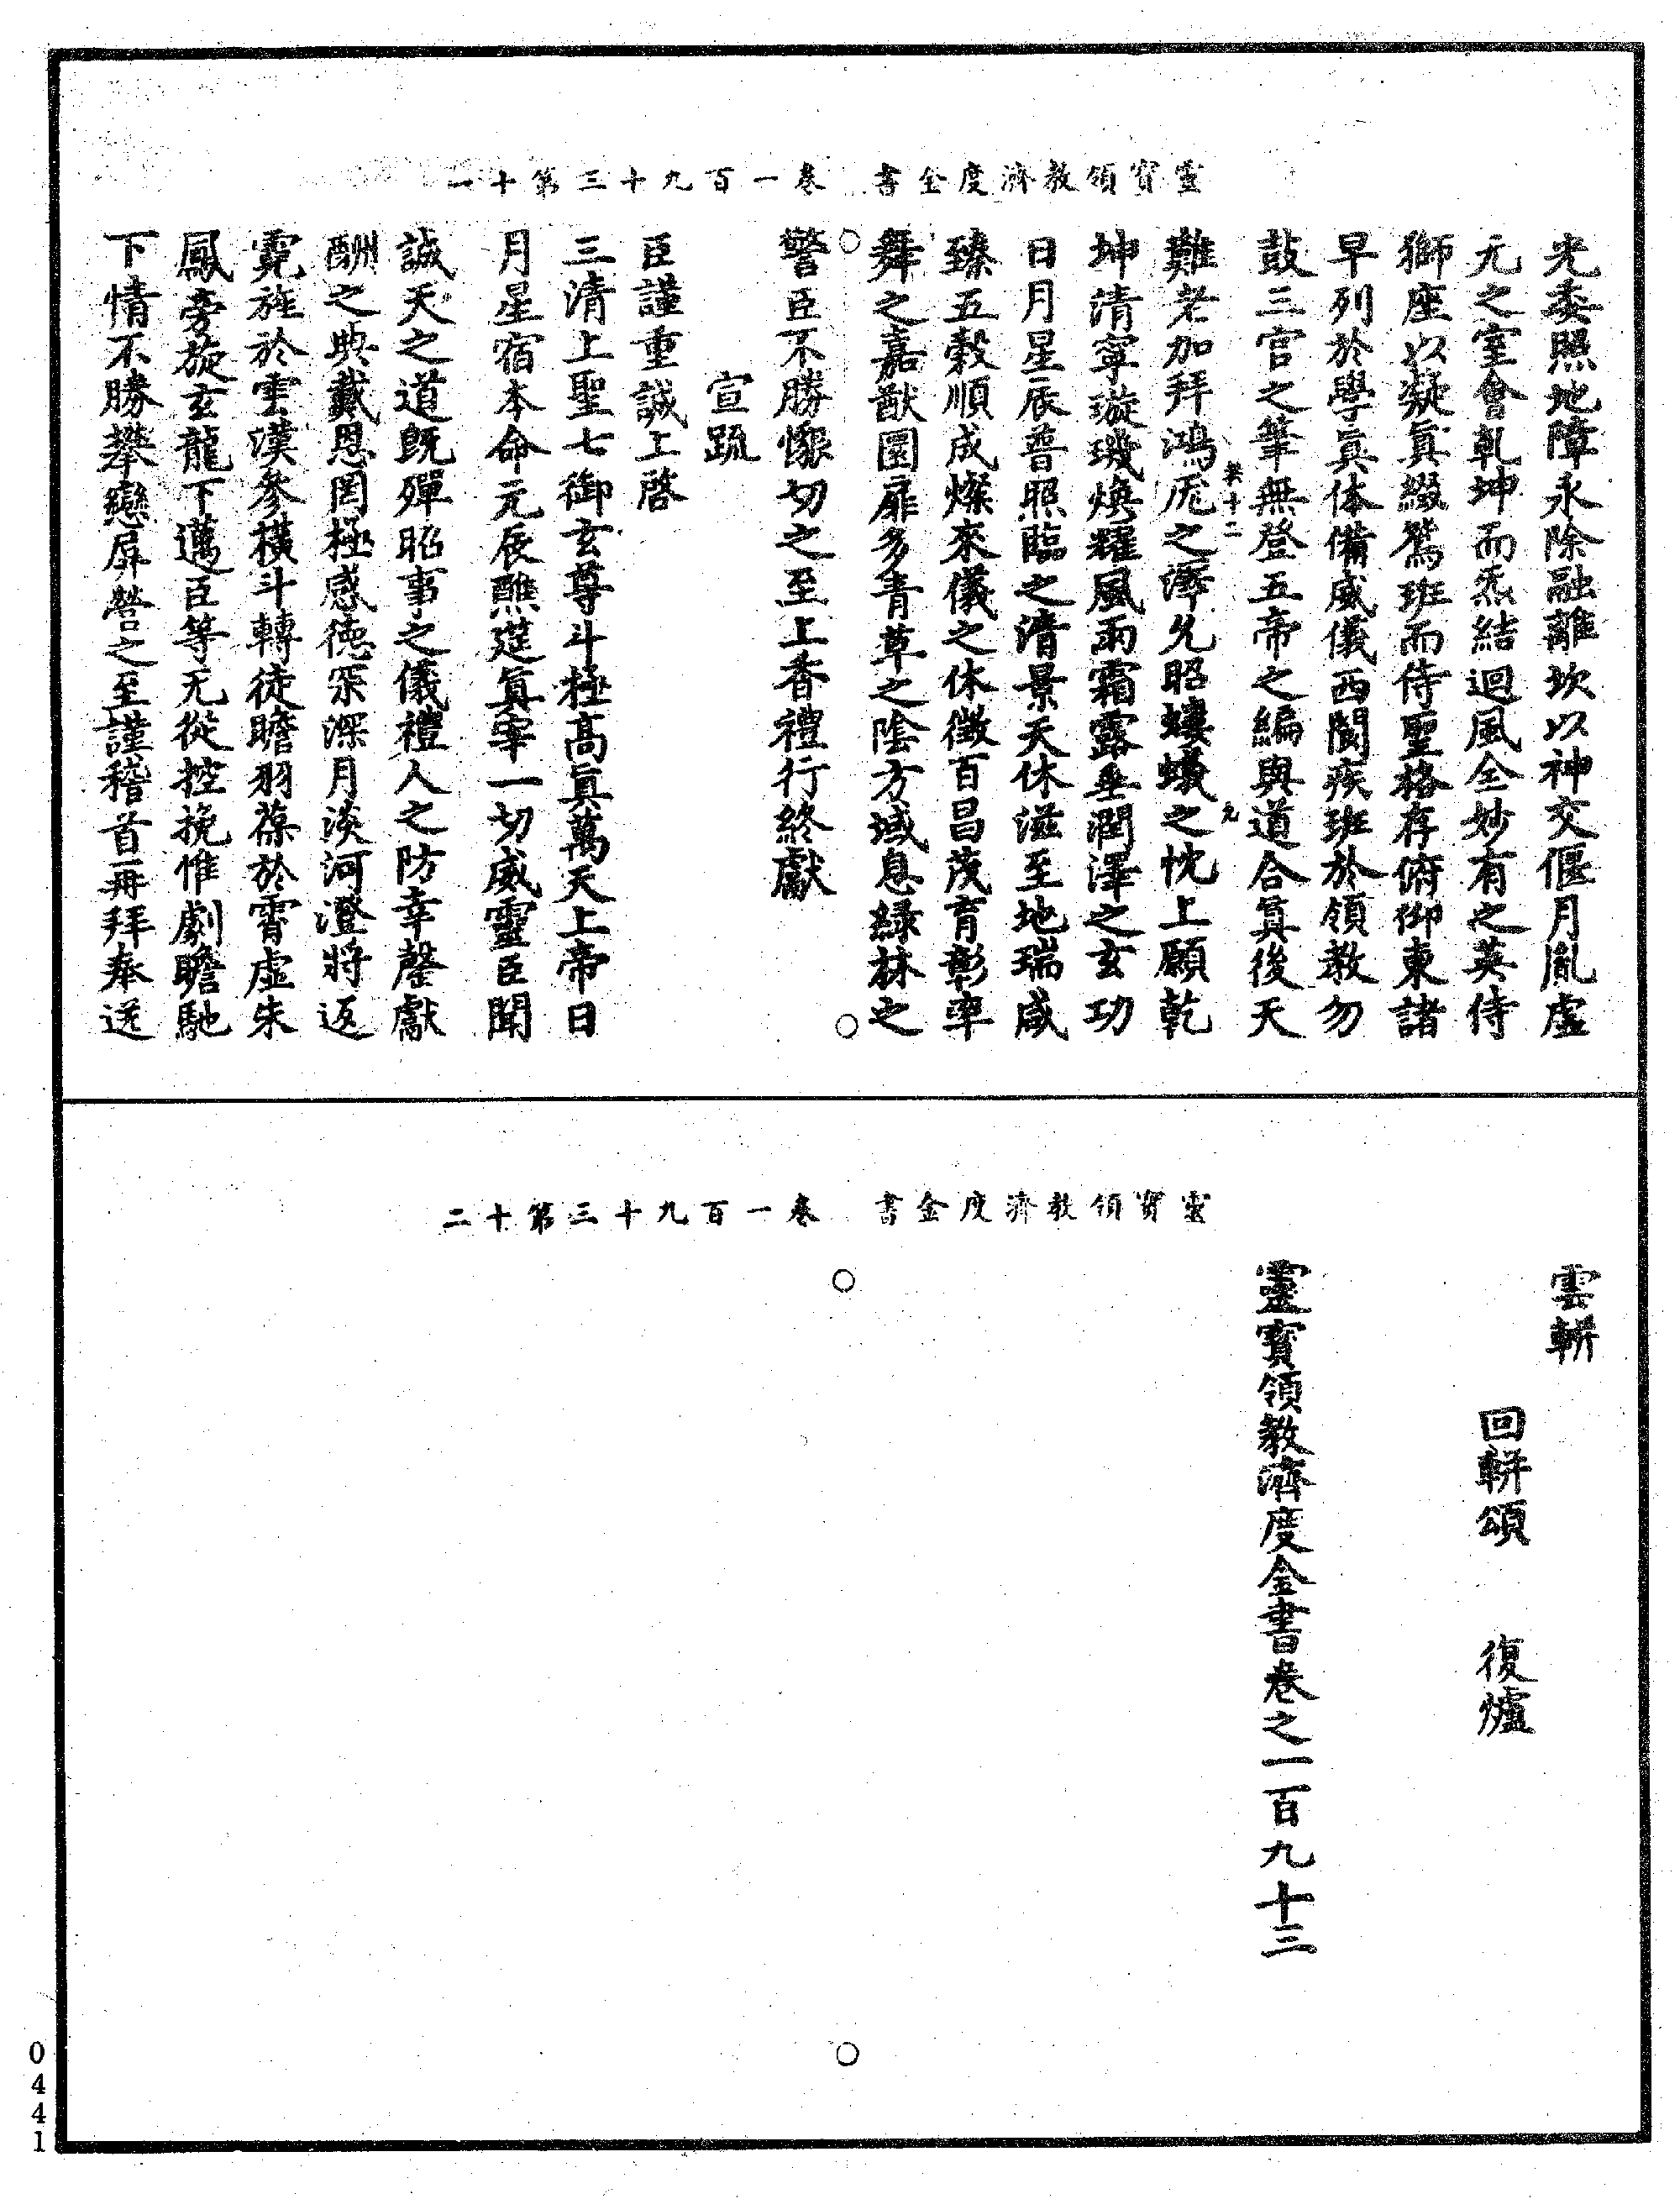 靈寶領教濟度金書　卷一百九十三第十一
光委照地障永除融離坎以神交偃月胤虛
元之室會乹坤而炁結迴風全妙有之英侍
獅座以凝真綴鵉班而侍聖格存俯仰東諸
早列於學真体備威儀西闅疾班於領教勿
鼓三官之筆無登五帝之編與道合真後天
難老加拜鴻厖之澤允昭螻蟻之忱上願乾
英十二
九
坤清寧璇璣煥耀風雨霜露垂潤澤之玄功
日月星辰普照臨之清景天休滋至地瑞咸
臻五穀順成燦來儀之休徵百昌茂育彰率
舞之嘉猷圜扉多青草之陰方域息綠林之
警臣不勝懷切之至上香禮行終獻
宣疏
臣謹重誠上啓
三清上聖七御玄尊斗極高真萬天上帝日
月星宿本命元辰醮莚真宰一切威靈臣聞
誠天之道旣殫昭事之儀禮人之防幸罄獻
酬之典戴恩罔極感德罙深月淡河澄將返
霓旌於雲漢參橫斗轉徒瞻羽葆於霄虛朱
鳳旁旋玄龍下邁臣等无從控挽惟劇瞻馳
下情不勝攀戀屏營之至謹稽首再拜奉送
靈寶領教濟度金書　卷一百九十三第十二
雲軿
回軿頌　復爐
靈寶領教濟度金書卷之一百九十三
0441